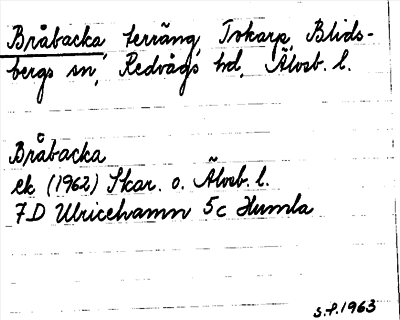 Bråbacka, terräng, Torkarp, Blids-
bergs sn, Redvägs hd, Älvsb. l.
Bråbacka
ek (1962) Skar. o. Älvsb. l.
7D Ulricehamn 5c Humla
S.f. 1963